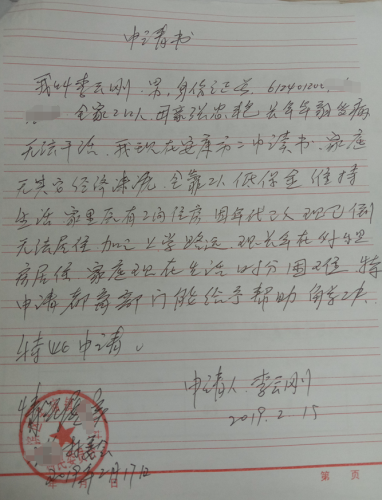 申请书
我叫李云刚,男,身份证号,612401200
全家2口人,因家
无法干活,我现在安康市二中读书,家庭
无其它经济来源,全靠2人低保金维持
生活,家里原有二间住房因年代已久现已倒
无法居住加之上学路远,现长年在外租
房居住,家庭现在生活十分困难,特
申请都部门能给予帮助解决
特此申请。
申请人:李云刚
2019.2.15
情况属实
2019年2月17日
第 页